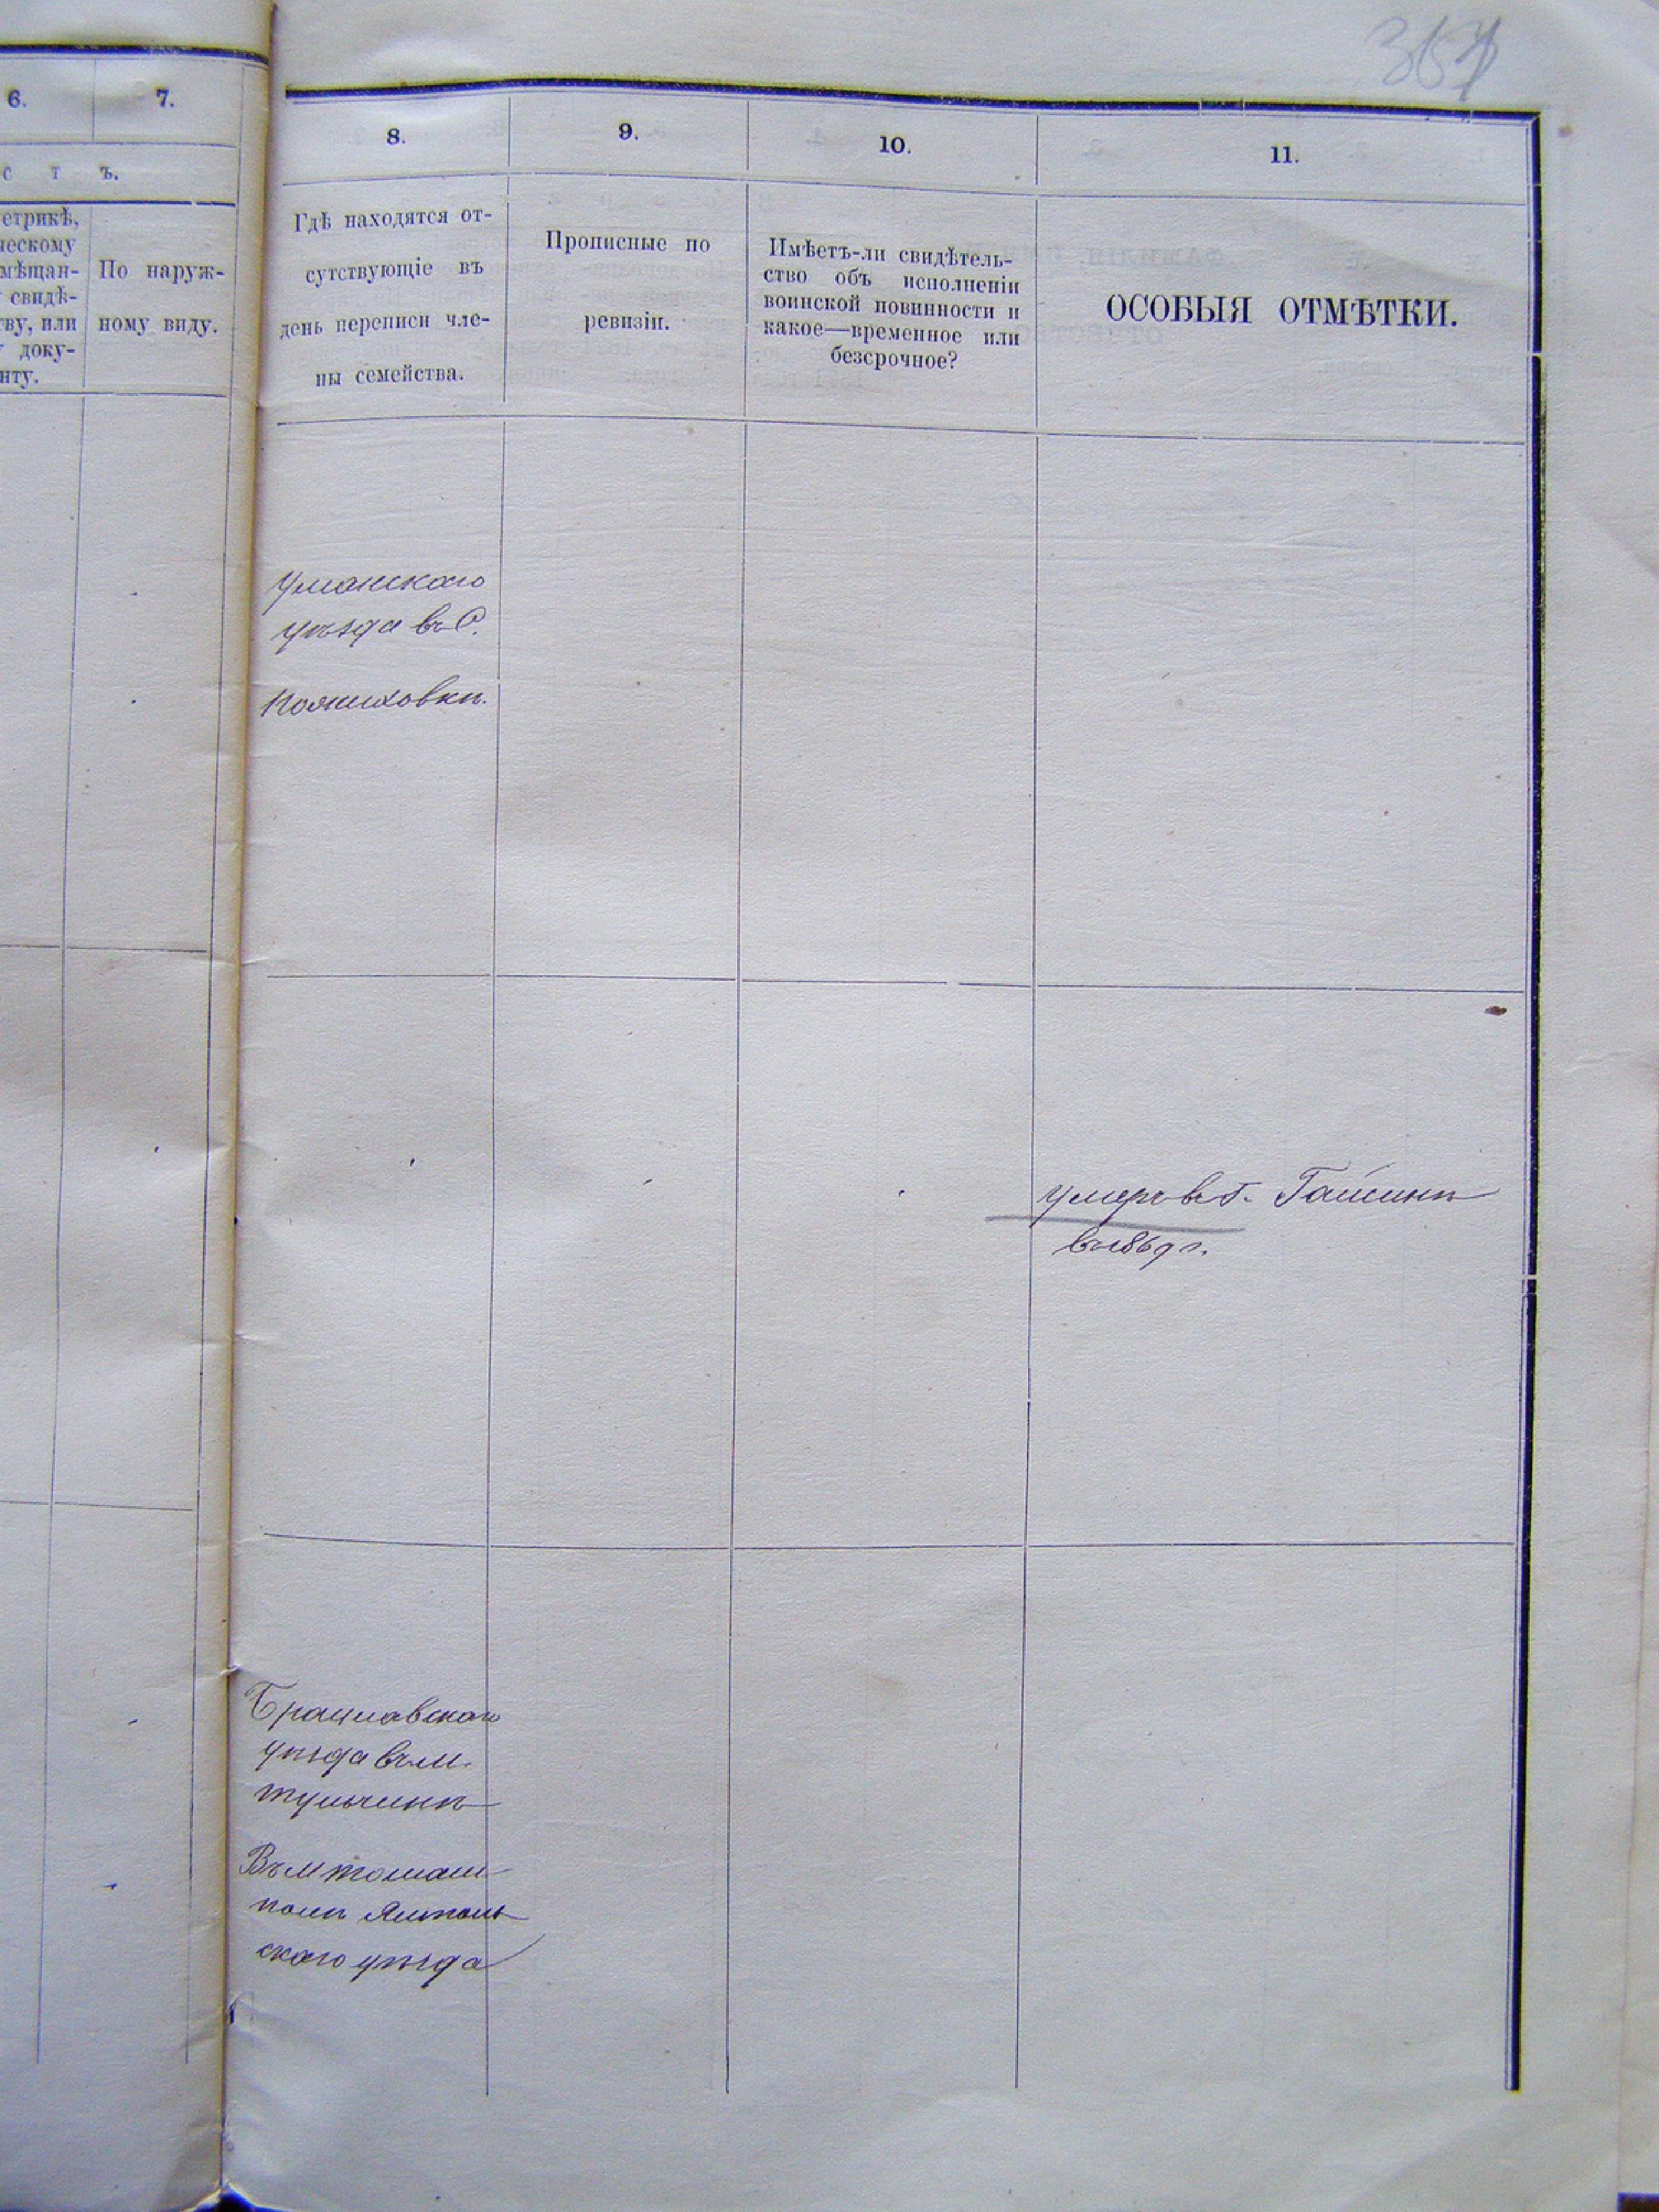 6.
7.
с т ъ.
етрикѣ,
ческому
мѣщан-
свидѣ-
ву, или
доку-
нту.
По наруж-
ному виду.
8.
9.
10.
11.
Гдѣ находятся от-
сутствующіе въ
день переписи чле-
ны семейства.
Прописные по
ревизіи.
Имѣетъ-ли свидѣтель-
ство объ исполненіи
воинской повинности и
какое—временное или
безсрочное?
ОСОБЫЯ ОТМѢТКИ.
Уманскаго
уѣзда въ С.
умеръ въ г. Гайсинѣ
въ 1869 г.
Брацлавскаго
уѣзда въ м.
тульчинѣ
Въ м томаш
полѣ Ямполь
скаго уѣзда